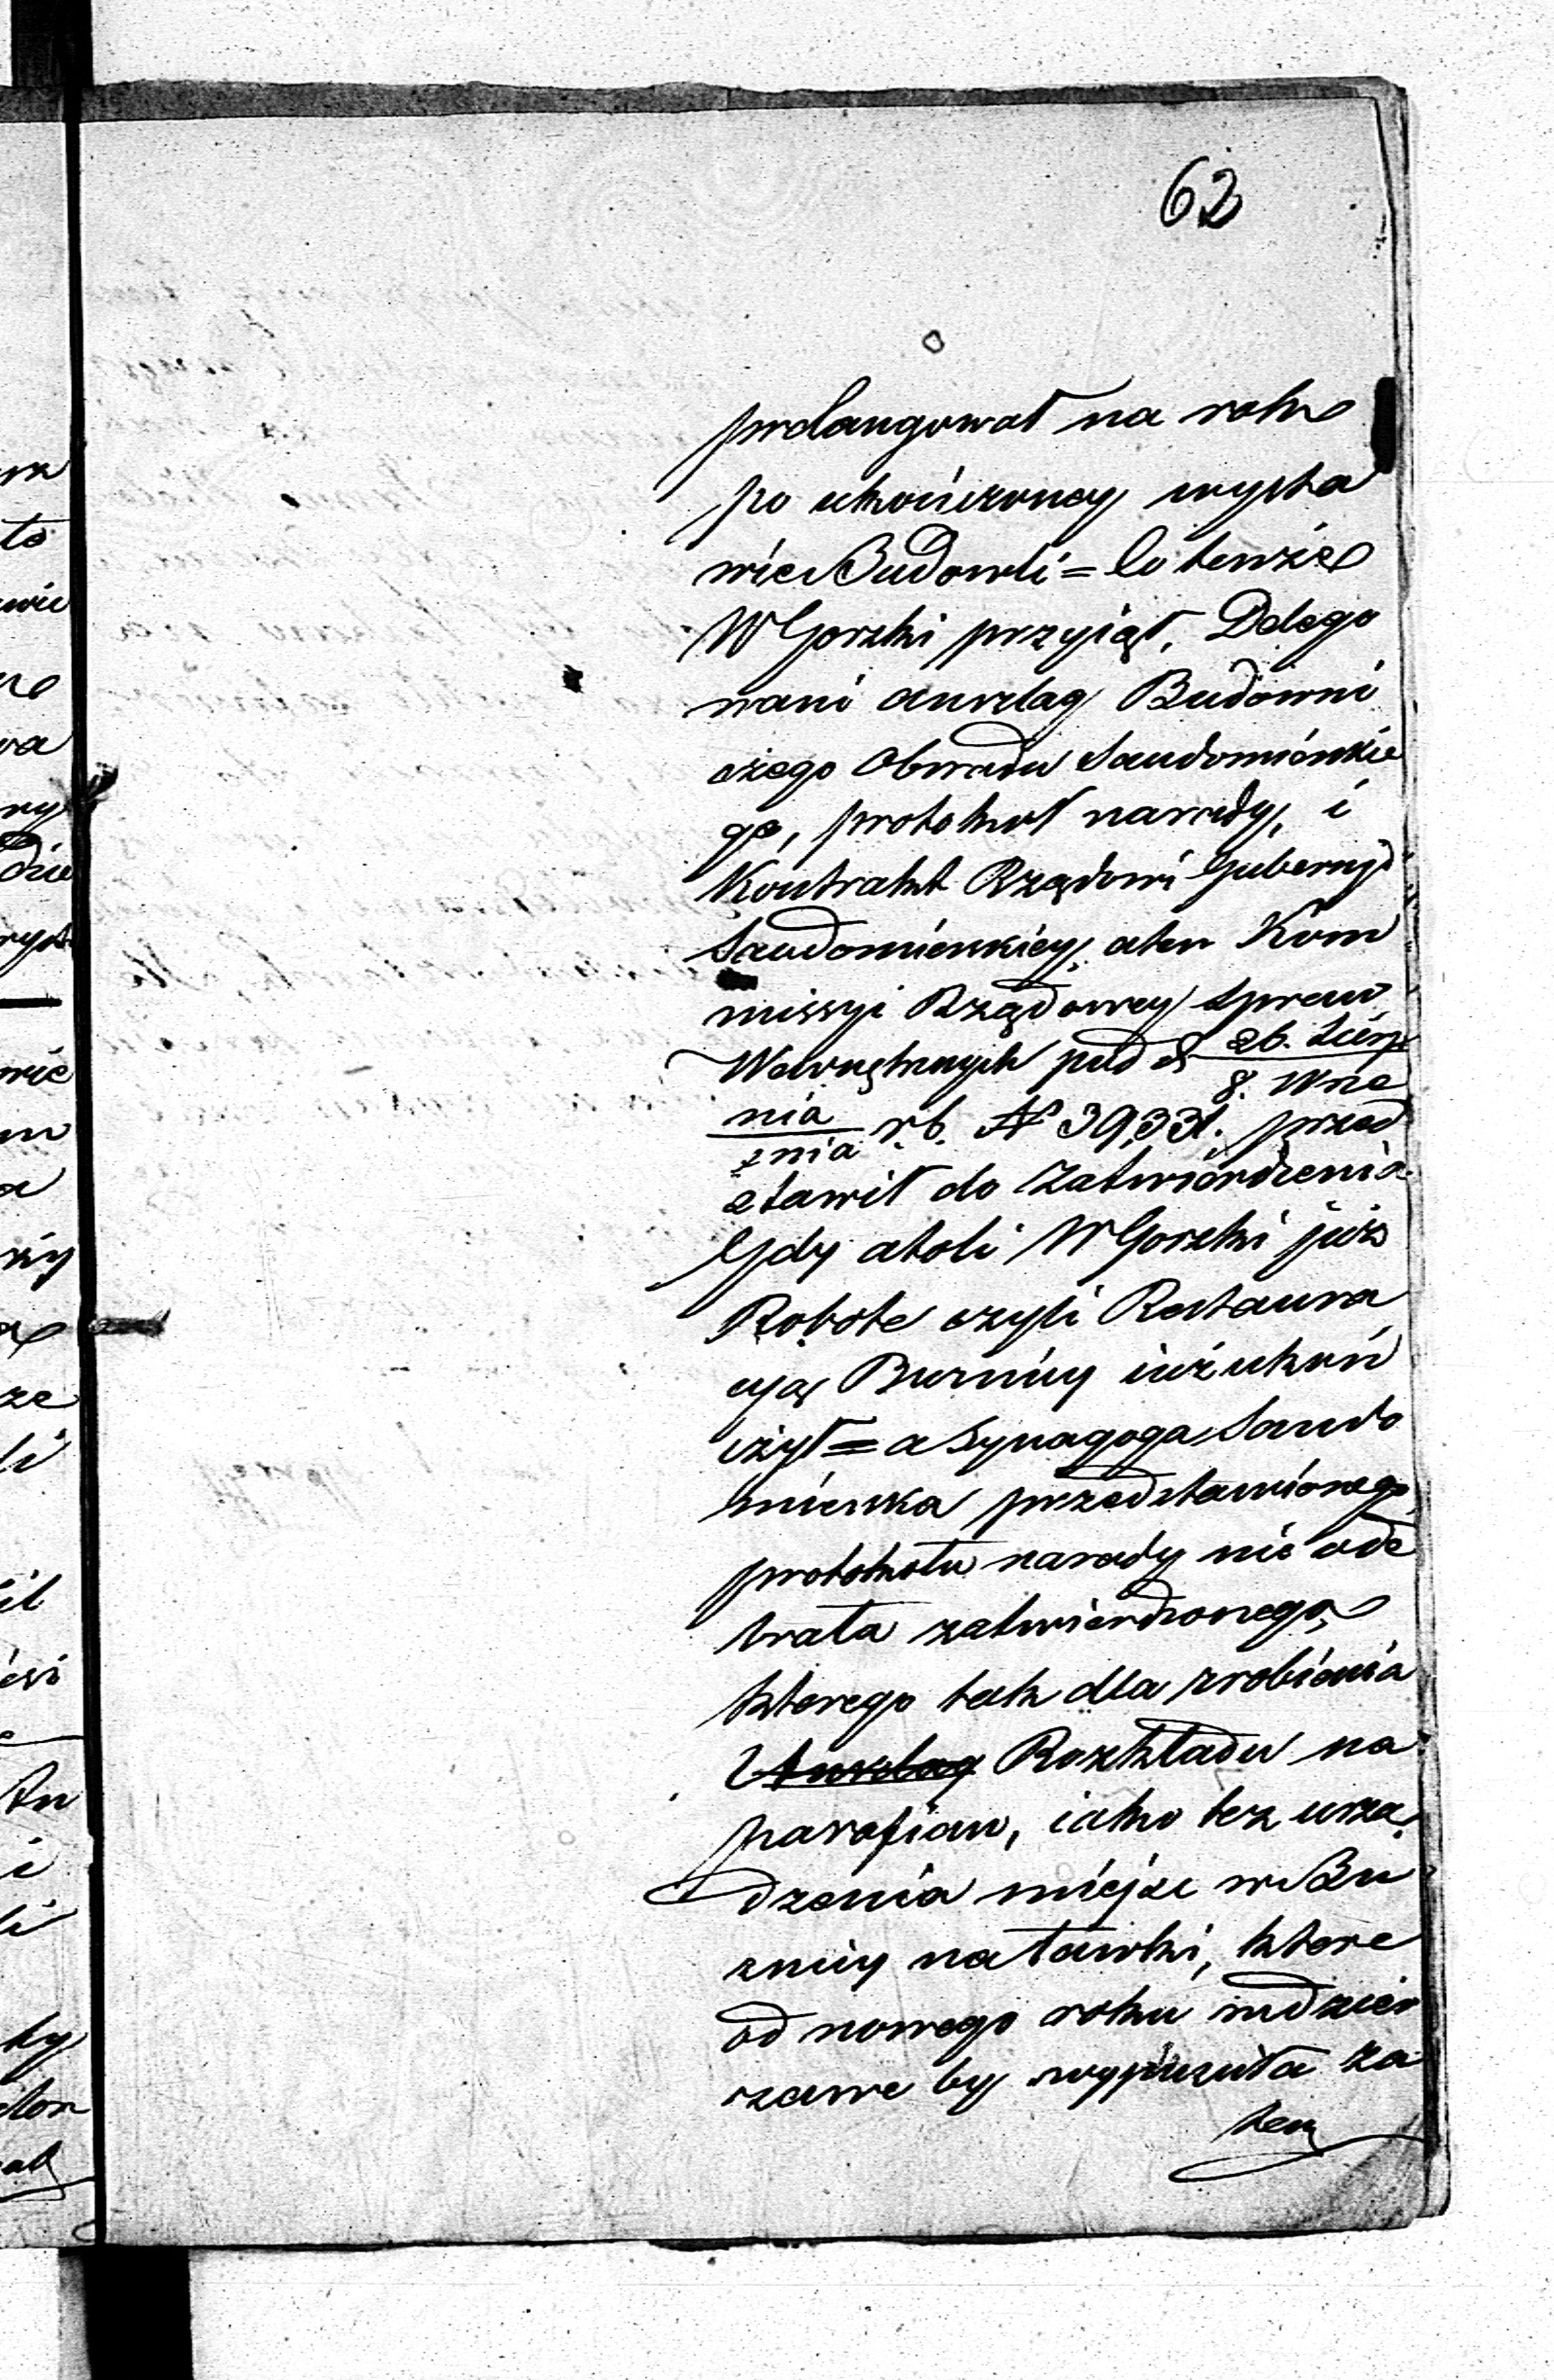 62
prolangował na rok
po ukończoney wysta
wie Budowli = Co tenże
W Gorski przyiął. Delego
wani anszlag Budowni
czego Obwodu Sandomierskie
go, protokuł narady, i
Kontrakt Rządowi Gubernji
Sandomierskiey, a ten Kom
missyi Rządowey Spraw
Wewnętrznych pod d 26. Sierp
8. Wrze
nia r. b. N 39,331. przed
śnia
stawił do Zatwierdzenia
Gdy atoli W Gorski już
Robote czyli Restaura
cyą Buznicy iuż ukoń
czył = a Synagoga Sando
mierska przedstawionego
protokołu narady nie ode
brała zatwierdzonego,
ktorego tak dla zrobienia
Anszlag Rozkładu na
parafian, iako tez urzą
dzenia miejsc w Bu
znicy na ławki, ktore
od nowego roku w dzier
zawe by wypuściła za
tem
rk
to
wie
wa
ry
dzie
nie
m
a
ży
ze
li
il
esi
i
li